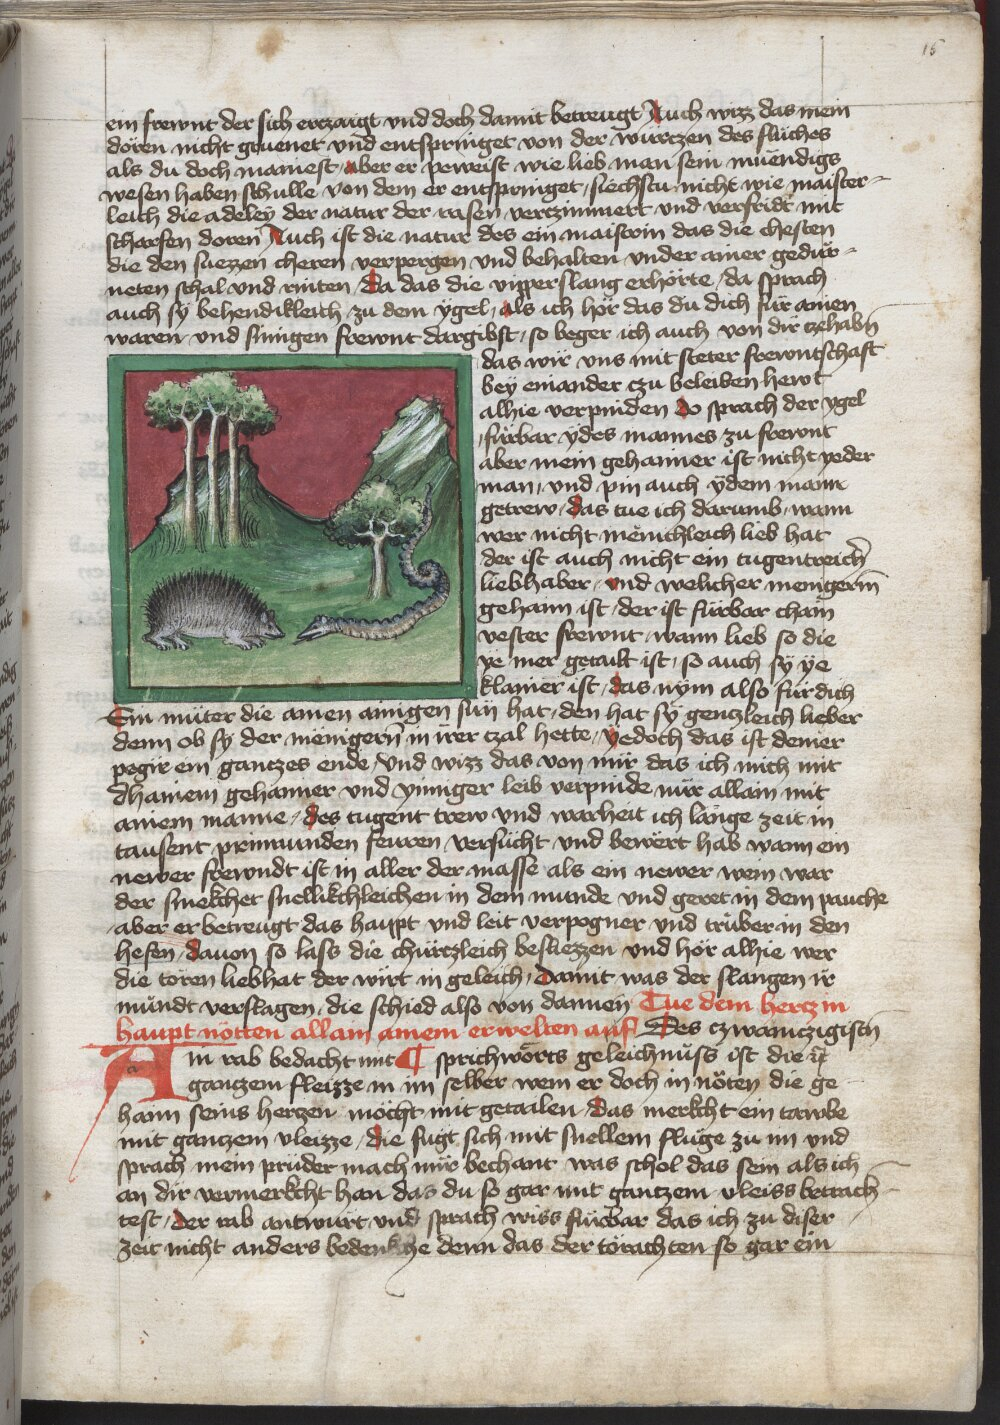 15
ein frewnt der sich erczaigt vnd doch damit betreugt Auch wizz das mein
doren nicht grunet vnd entspringet von der wurczen des fluches
als du doch mainest / aber er peweist wie lieb man sein nuendigs
wesen haben schulle von dem er entspringet / siechstu nicht wie maister-
leich die adeley der natur der rasen verczimmert vnd verfridt mit
scharfen doren Auch ist die natur des ein maistrin das die chesten
die den suezzen cheren verpergen vnd behalten vnder ainer gedur-
neten schal vnd rinten / Da das die vipperslang erhorte / da sprach
auch sy behendikleich zu dem ygel / als ich hor das du dich fur ainen
waren vnd sinigen frewnt dargibst / so beger ich auch von dir czehabn
das wir vns mit steter frewntschaft
bey einander czu beleiben hewt
alhie verpinden Do sprach der ygel
furbar ydes mannes zu frewnt
aber mein gehaimer ist nicht yeder
man / vnd pin auch ydem mann
getrew / das tue ich darumb / wann
wer nicht menichleich lieb hat
der ist auch nicht ein tugentreicher
liebhaber / vnd welicher menigerm
gehaim ist / der ist furbar chain
vester frewnt / wann lieb so die
ye mer getailt ist / so auch sy ye
klainer ist / das nym also fur dich
Ein muter die ainen ainigen sun hat / den hat sy genczleich lieber
denn ob sy der menigern in irer czal hette / yedoch das ist deiner
pegir ein ganczes ende / vnd wizz das von mir das ich mich mit
dhainem gehaimer vnd ynniger leib verpinde nur allain mit
ainem manne / des tugent trew vnd warheit ich lange zeit in
tausent prinnunden feuren versucht vnd bewert hab wann ein
newer frewndt ist in aller der masse als ein newer wein war
der smekchet snellikchleichen in dem munde vnd geret in dem pauche
aber er betreugt das haupt vnd leit verpogner vnd truber in den
hefen / dauon so lass die churczleich besliezzen vnd hor alhie wer
die toren liebhat der wirt in geleich / Damit was der slangen ir
mundt verslagen / die schied also von dannen Tue dem hercz in
haupt notten allain ainem erwelten auf Des czwainczigisten
Ain rab bedacht mit sprichworts geleichnuss ist die
ganczem fleizze in im selber wem er doch in noten die ge-
haim seins herczen mocht mit getailen / das merkcht ein tawbe
mit ganczem vleizze / die fugt sich mit snellem fluge zu im vnd
sprach mein pruder mach mir bechant was schol das sein als ich
an dir vermerkcht han das du so gar mit ganczem vleiss betrach-
test / Der rab antwurt vnd sprach wiss furbar das ich zu diser
zeit nicht anders bedenkche denn das der torachten so gar ein